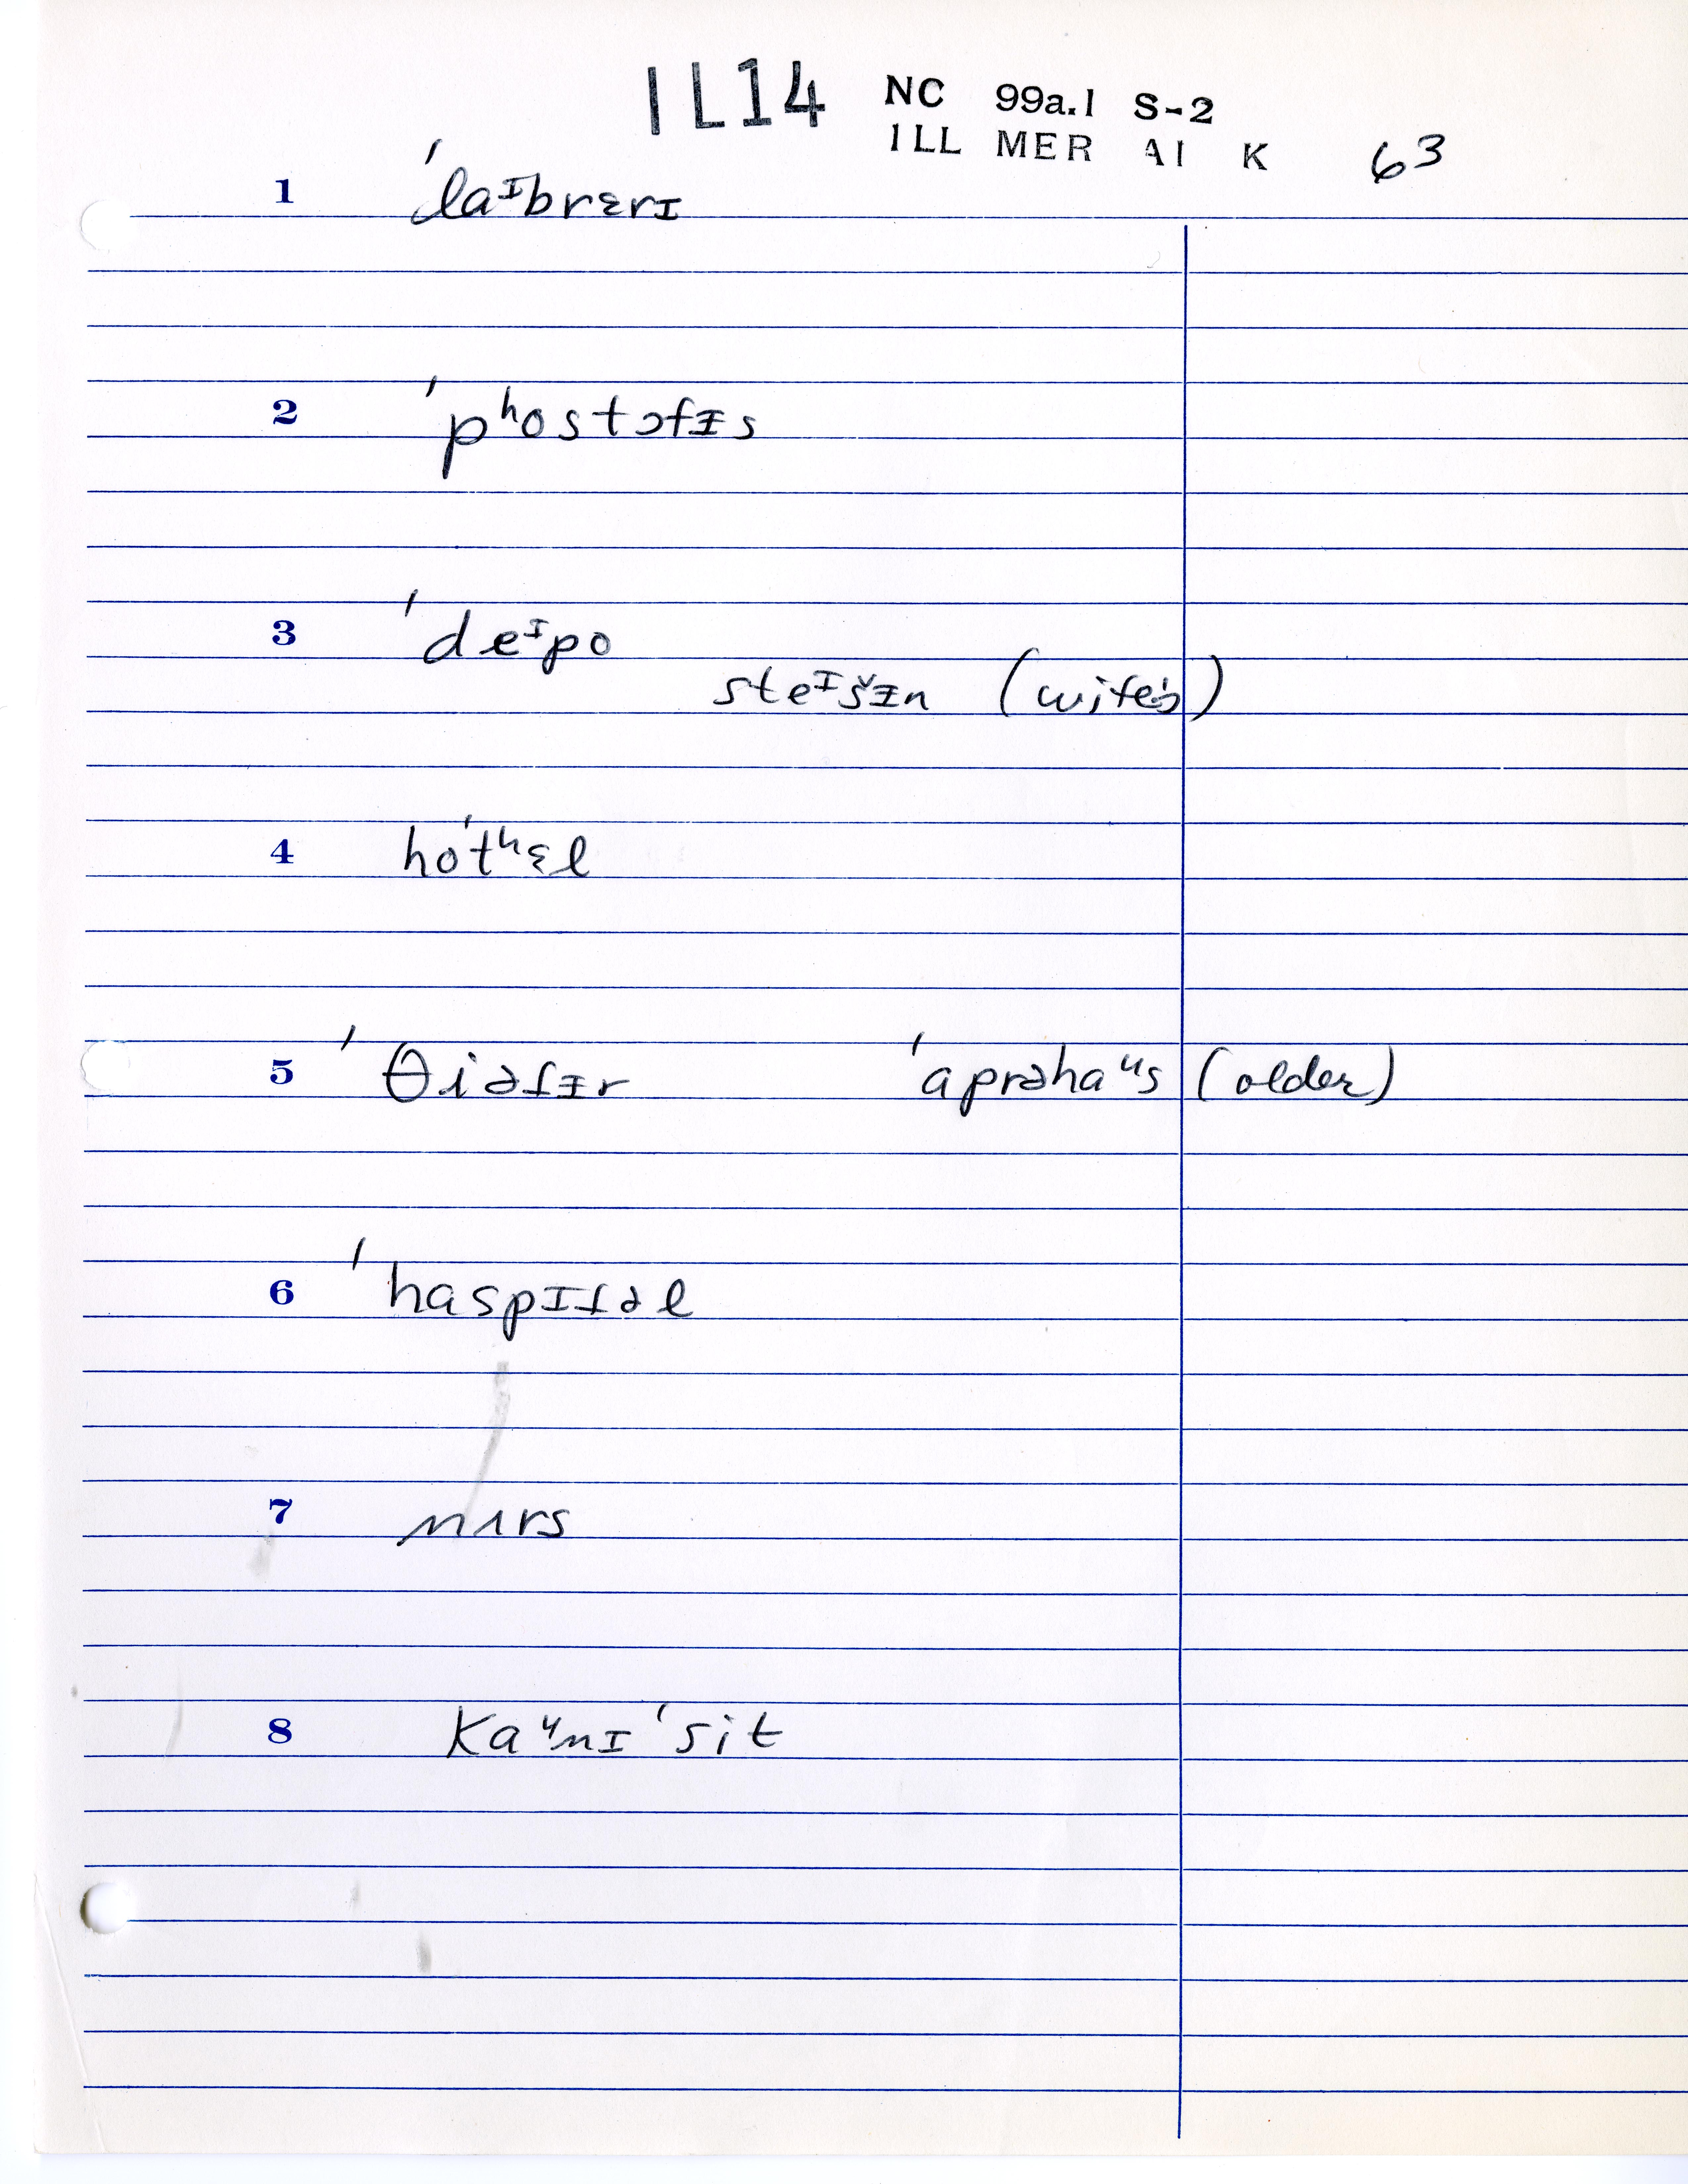 IL14 NC 99a.1 S-2
ILL MER AI K 63
1 ˈlaᶦbrɛrɪ
2 ˈpʰostɔfɪ̵s
3 ˈdeᶦpo
steᶦšɪ̵n (wife's)
4 hoˈtʰɛl
5 ˈθiət̬ɪ̵r ˈaprəhaᵘs (older)
6 ˈhaspɪt̬əl
7 nɜrs
8 kaᵘnɪˈsit